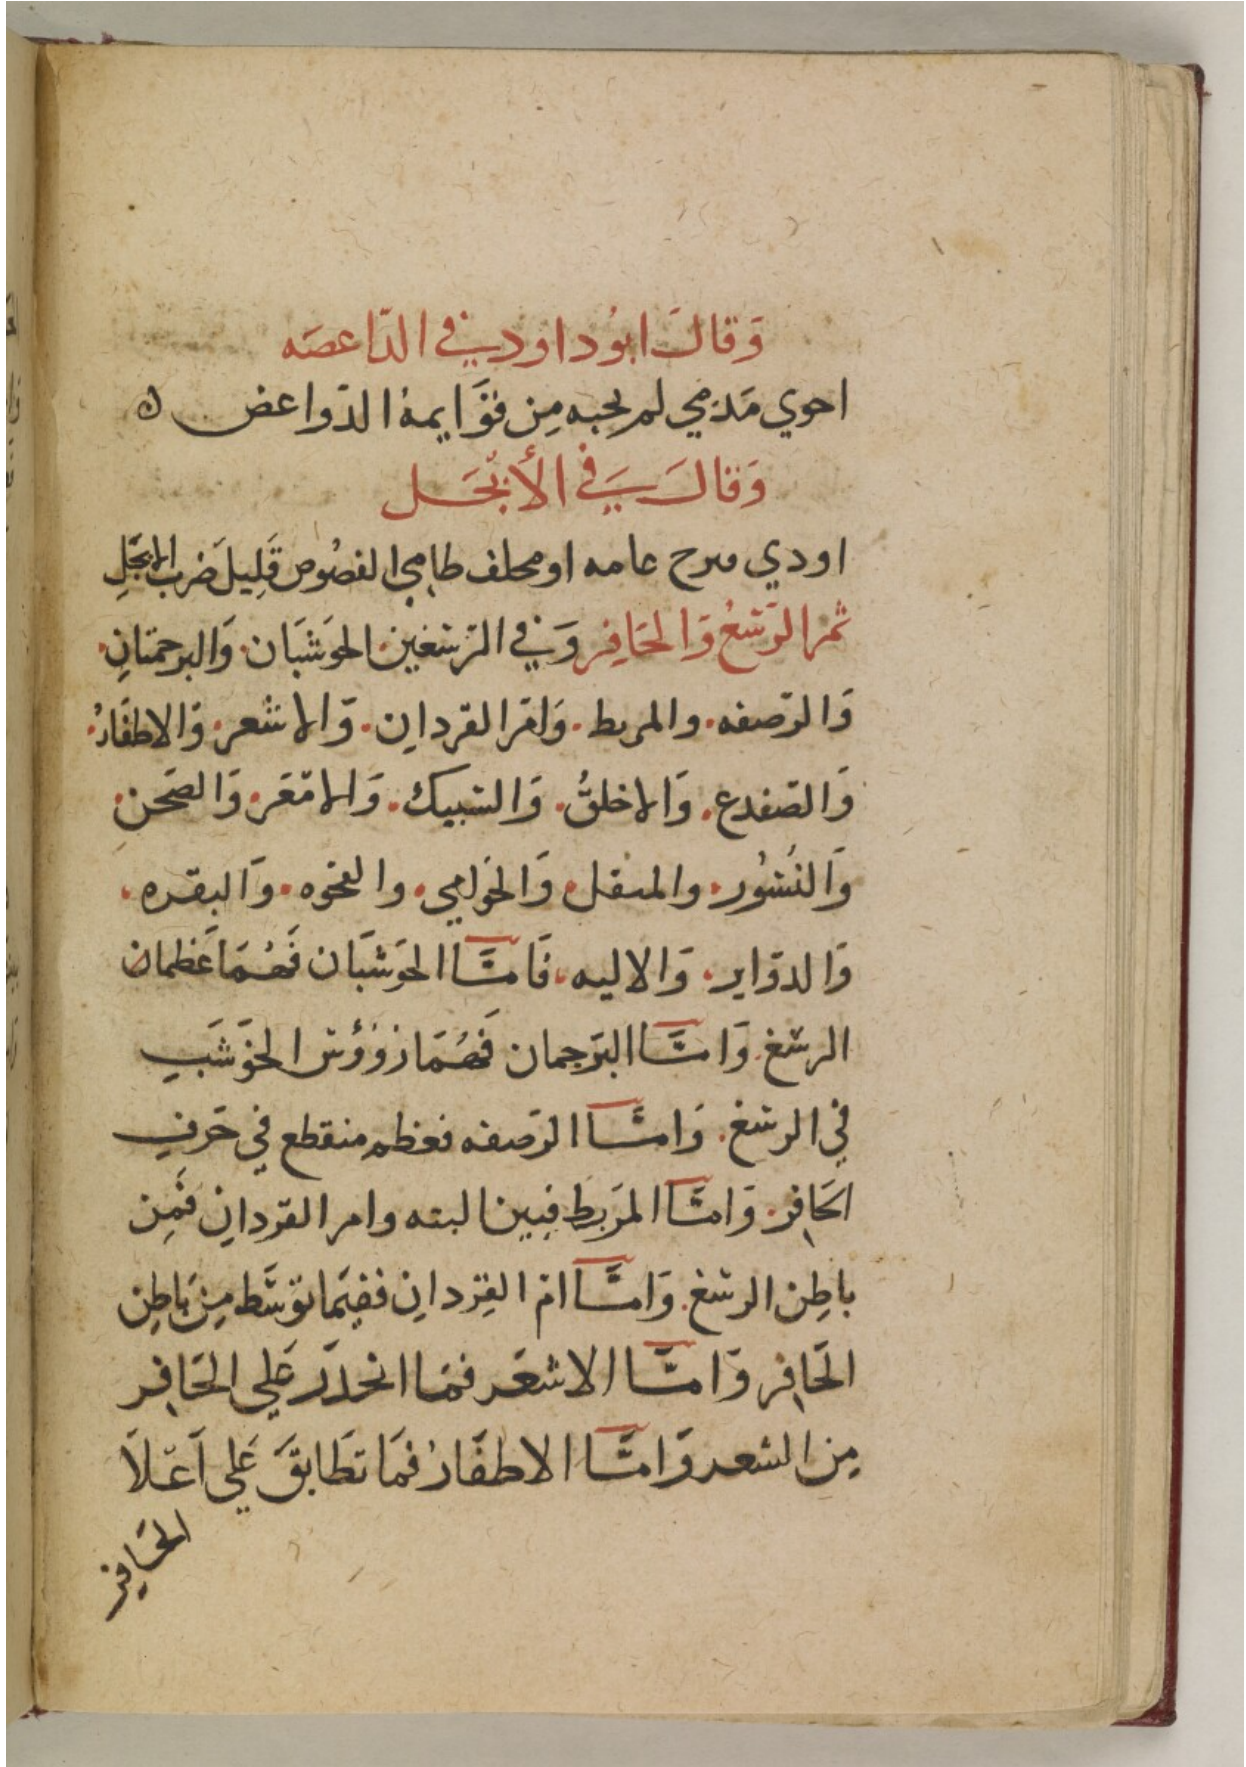 وَقَالَ ابوُداودي في الدّاعصَه
احوي مَدمجي لم بحبه مِن فوَّايمهُ الدّواعض
وَقالَ في الأبْجَل
اودي مرح عامه او محلف طامِي الفصُوص قَلِيل ضرب الابجَلِ
ثم الرَسْغُ وَالحَافِر وَفي الرَسْغين الحَوشَبَان وَالبرجمتانِ
وَالرّصفه والمربط وَام القردانِ وَالاشعر وَالاطفَارُ
وَالصّفدع وَالاخلقُ وَالسَبيك وَالامّعَر وَالصَحنِ
وَالنُسُور والمنقل وَالحَوامِي والفجوه وَالبقره
وَالدوَاير وَالاليه فَامَّا الحَوشَبَان فَهُمَا عَظمان
الرسْغ وَامَّا البَرجمان فَهُمَا رؤوْس الحَوَشَبِ
في الرسْغ وَامَّا الرَصفه فعظم منقطع في حَرفِ
الحَافِر وَامَّا المَربَط فبين البته وام القردانِ فمِن
باطِن الرسْغ وَامَّا امّ القِردانِ ففيمَا توسَّط مِن بَاطِن
الحَافِر وَامَّا الاشعَر فمَا انحدَر عَلي الحَافِر
مِن الشعر وَامَّا الاطفَارُ فمَا تطَابقَ عَلي اَعَلاَ
الحَافِر